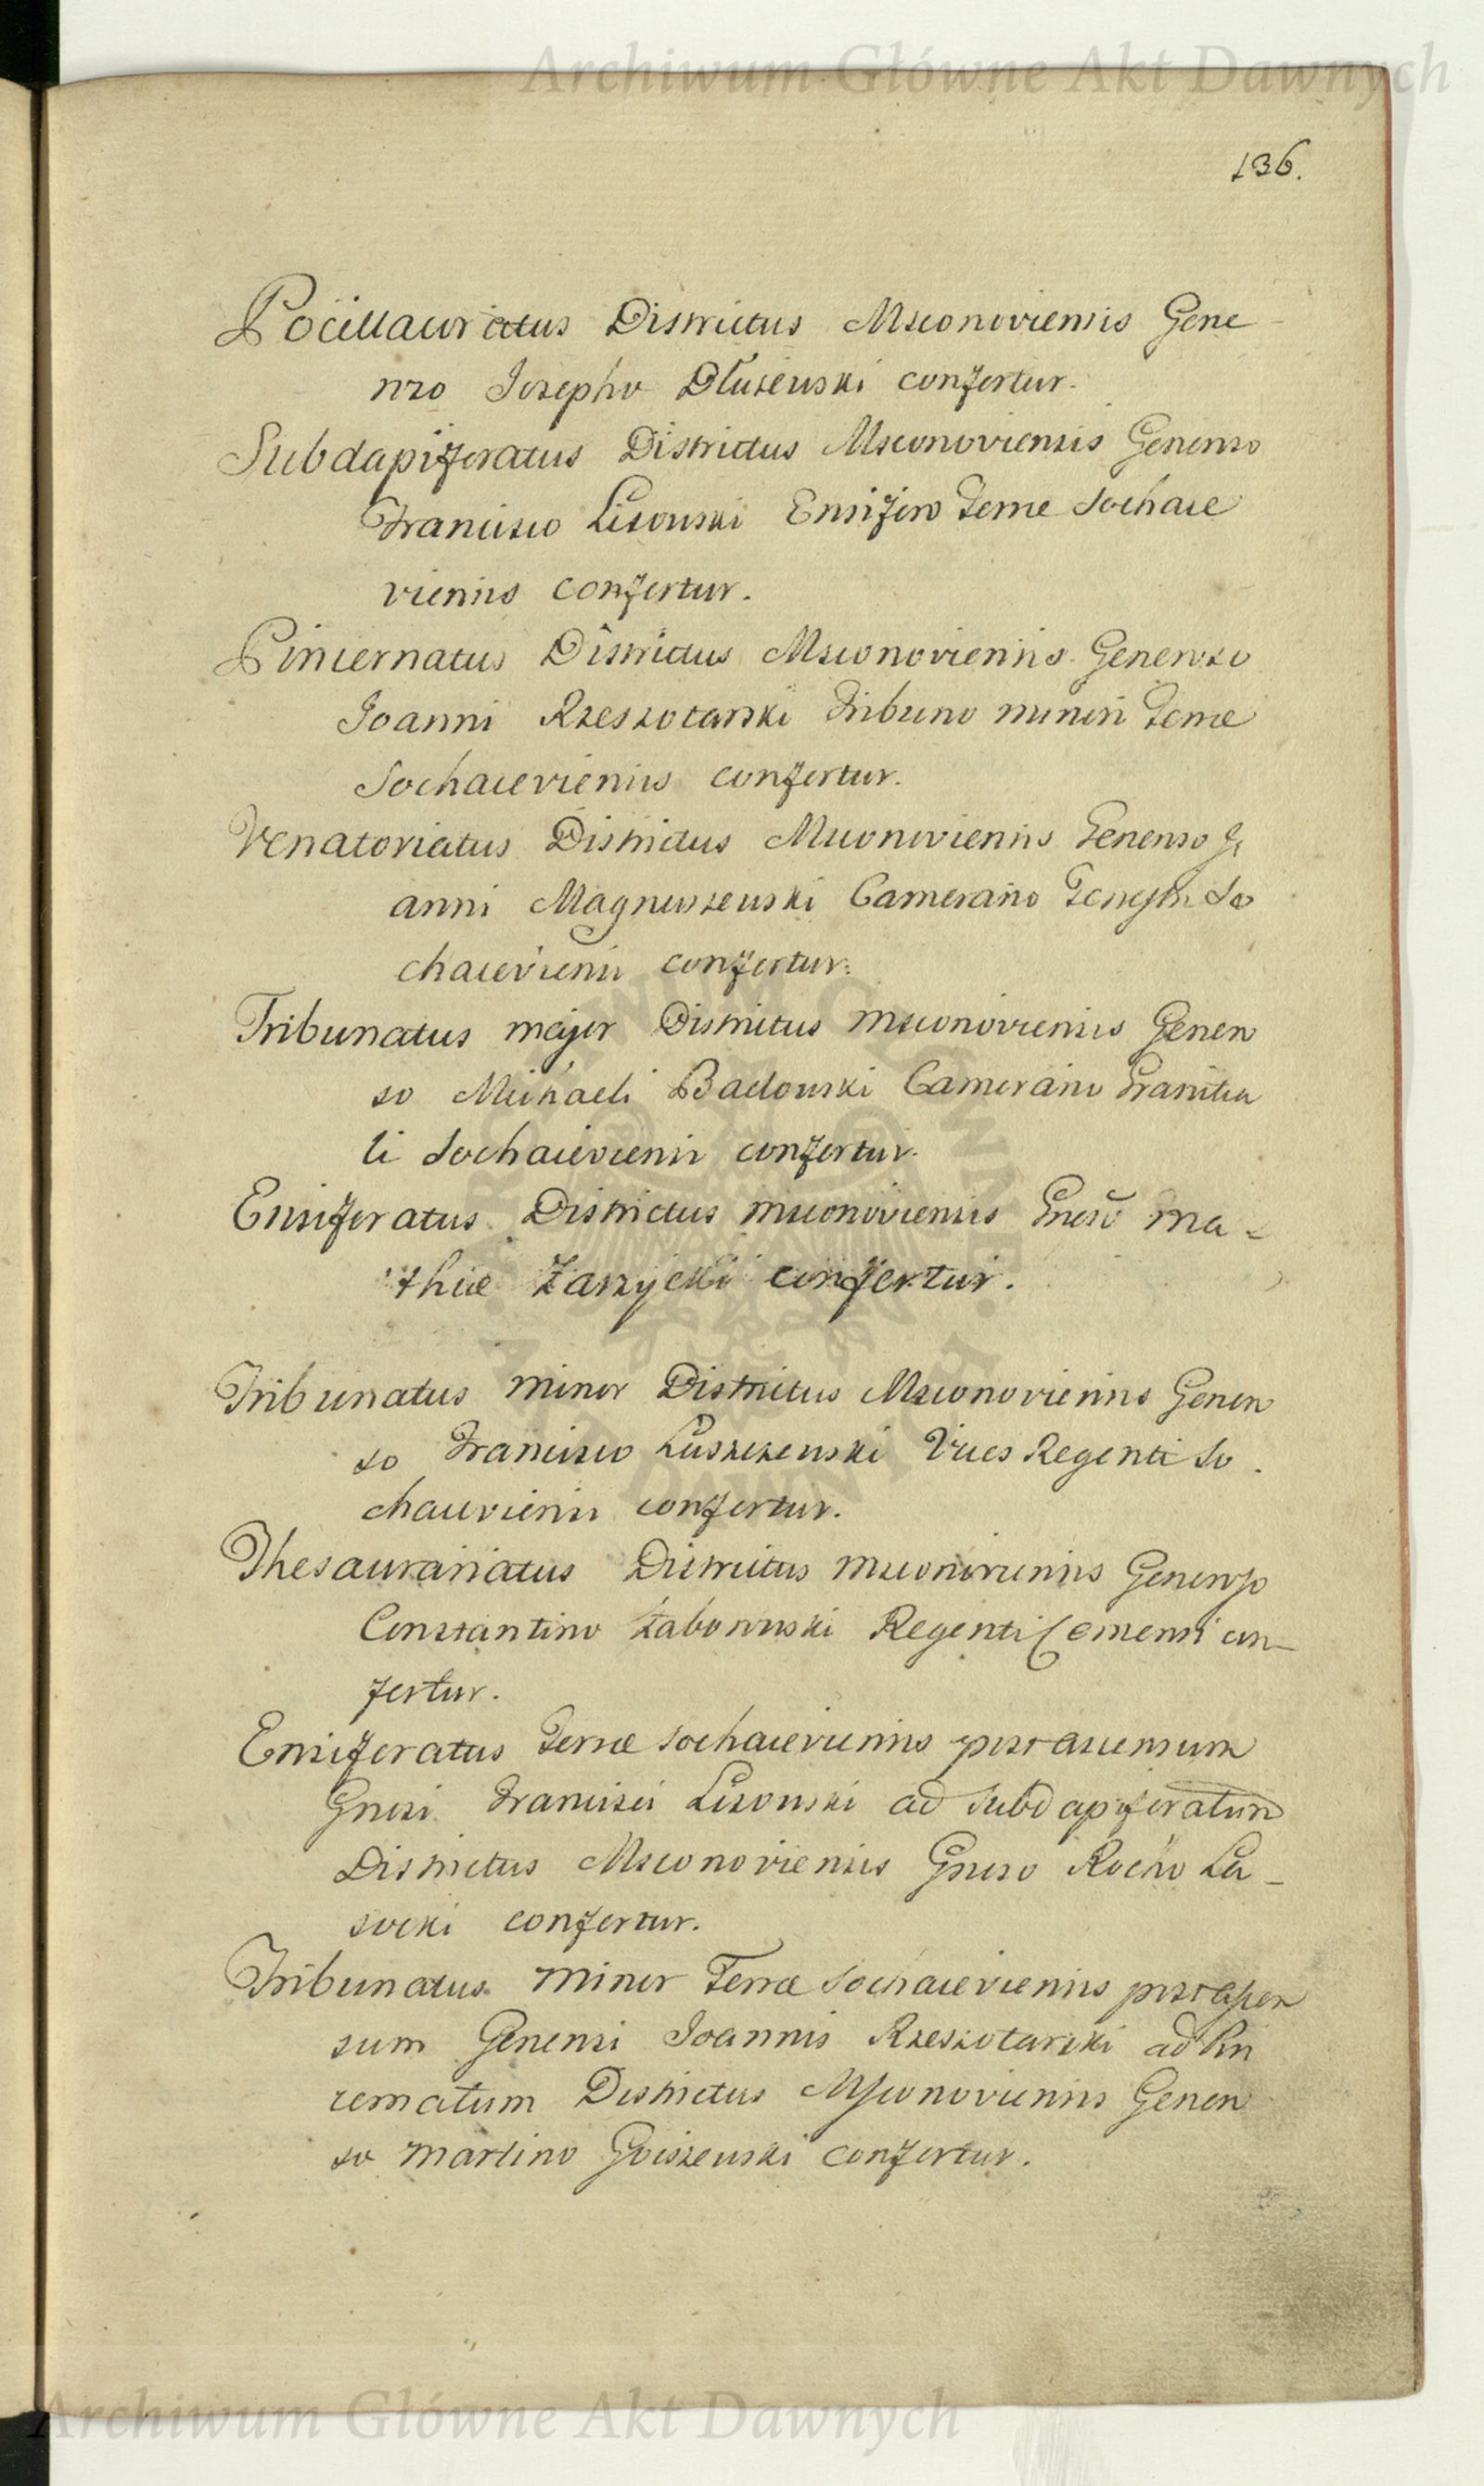 Archiwum Główne Akt Dawnych
136.
Pocillatoriatus Districtus Msconoviensis Gene
roso Josepho Dluzewski confertur.
Subdapiferatus Districtus Msconoviensis Generoso
Francisco Lisowski Ensifero Terræ Sochace
viensis confertur.
Pincernatus Districtus Msconoviensis Generoso
Joanni Rzeszotarski Tribuno minori Terræ
Sochaceviensis confertur.
Venatoriatus Districtus Msconoviensis Generoso Jo
anni Magnuszewski Camerario Terrestri So
chaceviensi confertur.
Tribunatus major Districtus Msconoviensis Genero
so Michaeli Badowski Camerario Granitia
li Sochaceviensi confertur.
Ensiferatus Districtus Msconoviensis Gnoso Ma-
thiæ Zarzycki confertur.
Tribunatus minor Districtus Msconoviensis Genero
so Francisco Luszczewski Vices Regenti So
chaceviensi confertur.
Thesaurariatus Districtus Msconoviensis Generoso
Constantino Zaborowski Regenti Cemensi con-
fertur.
Ensiferatus Terræ Sochaceviensis post ascensum
Gnosi Francisci Lisowski ad Subdapiferatum
Districtus Msconoviensis Gnoso Rocho La-
socki confertur.
Tribunatus minor Terræ Sochaceviensis post ascen
sum Generosi Joannis Rzeszotarski ad Pin
cernatum Districtus Msconoviensis Genero
so Martino Goiszewski confertur.
Archiwum Główne Akt Dawnych